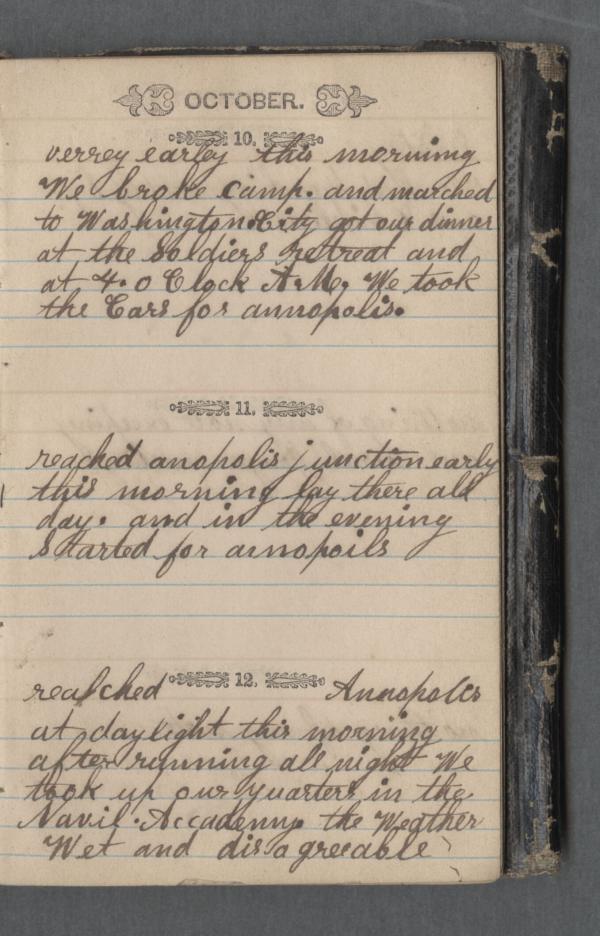 OCTOBER.
10.
verrey earley this morning
We broke Camp. and marched
to Washington City got our dinner
at the Soldiers Retreat and
at 4. O Clock A.M. We took
the Cars for annopolis.
11.
reached anopolis junction early
this morning lay there all
day. and in the evening
Started for annopoils
12.
reached Annopolis
at daylight this morning
after running all night We
took up our quarters in the
Navil. Accademy. the Weather
Wet and disagreeable